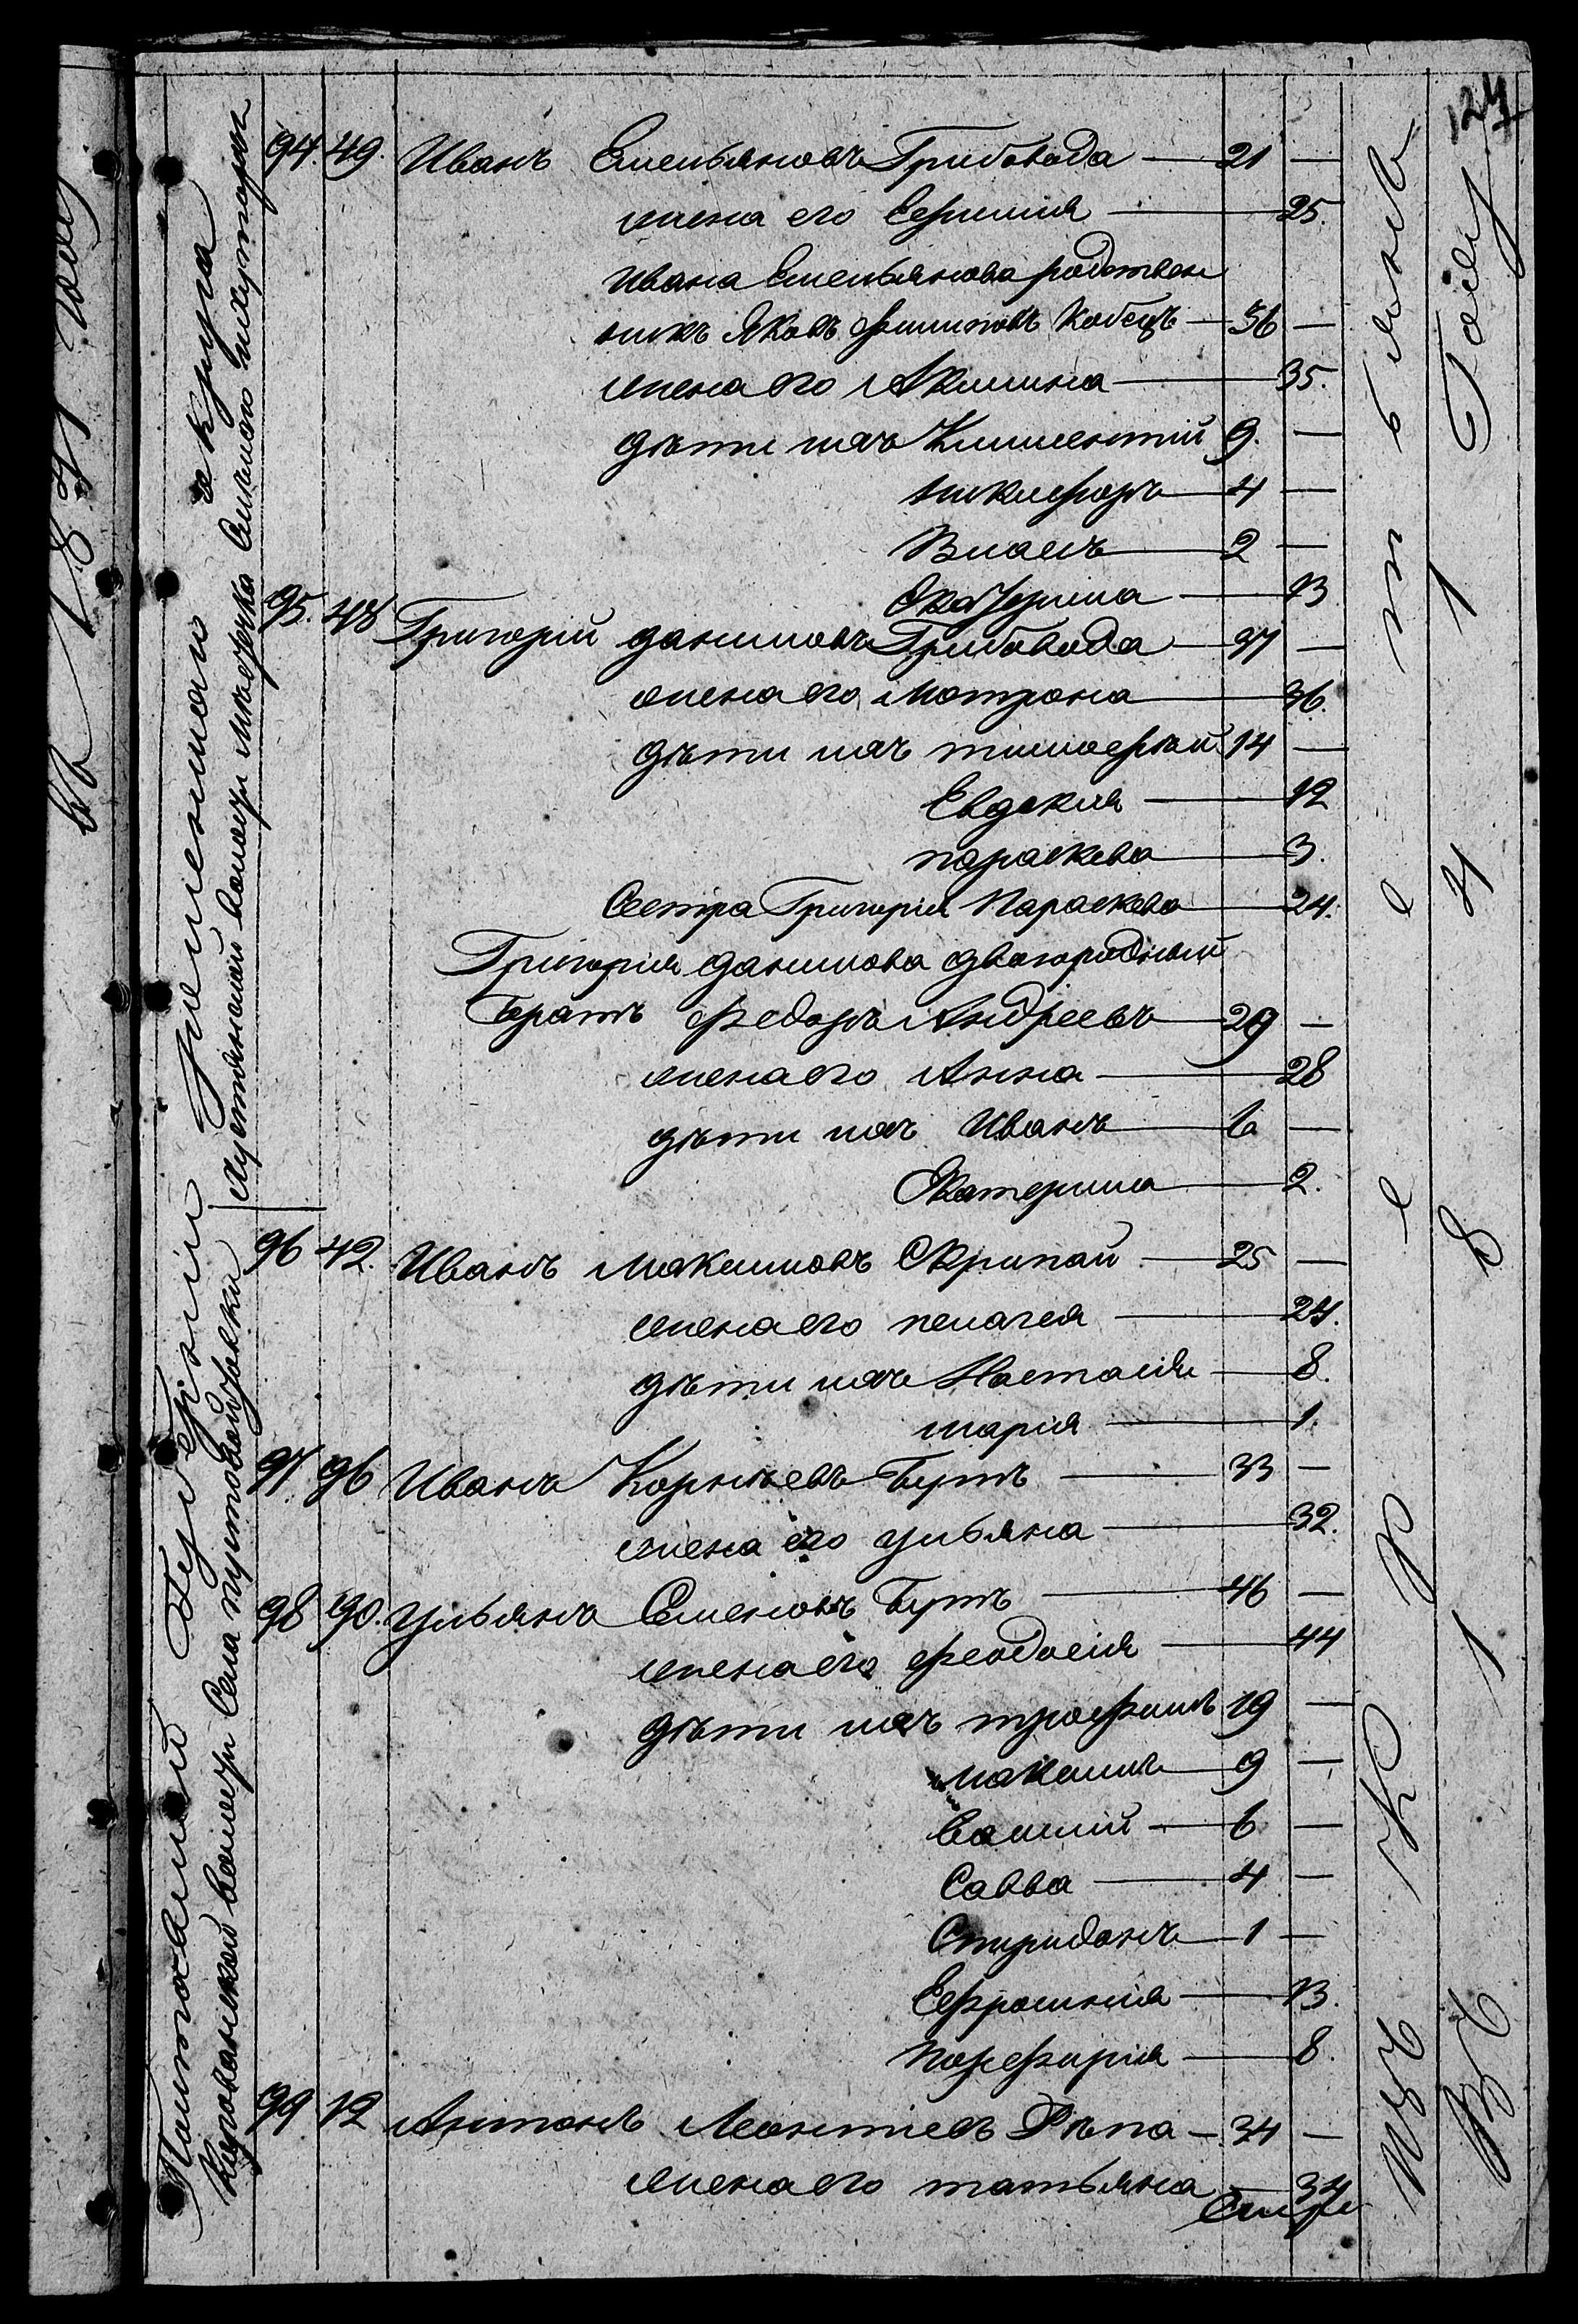 127
94. 49. Иванъ Емельяновъ Грибовода — 21 —
жена его Ефимия — 25.
Ивана Емельянова родствен
никъ Яковъ Филиповъ Кобецъ — 36 —
жена его Акилина — 35.
дѣти ихъ Климентій 9. —
никифоръ — 4 —
Власъ — 2 —
Екатерина — 13
95. 48 Григорій даниловъ Грибовода — 37 —
жена его Мотрона — 36.
дѣти ихъ тимофѣй 14 —
Евдокия — 12
параскева — 3.
Сестра Григорія Параскева — 24.
Григорія данилова двоюродный
братъ Федоръ Андреевъ — 29 —
жена его Анна — 28
дѣти ихъ Иванъ — 6 —
Екатерина — 2.
96 42. Иванъ Максимовъ Скрипай — 25 —
жена его пелагея — 24.
дѣти ихъ Настасія — 8.
марія — 1.
97 96 Иванъ Корнѣевъ Бутъ — 33 —
жена его ульяна — 32.
98 90. ульянъ Семеновъ Бутъ — 46 —
жена его феодосія — 44
дѣти ихъ трофимъ 19 —
максимъ — 9 —
Василій — 6 —
Савва — 4 —
Спиридонъ — 1 —
Ефросинія — 13.
порфирія — 8.
99 12 Антонъ Леонтіевъ Рѣпа — 34 —
жена его татьяна — 34
Полтавской Губерніи
Села
волости Мѣстечка
округа
Изъ Крестьянъ
Въ 1871 Году
Въ 1871 Году